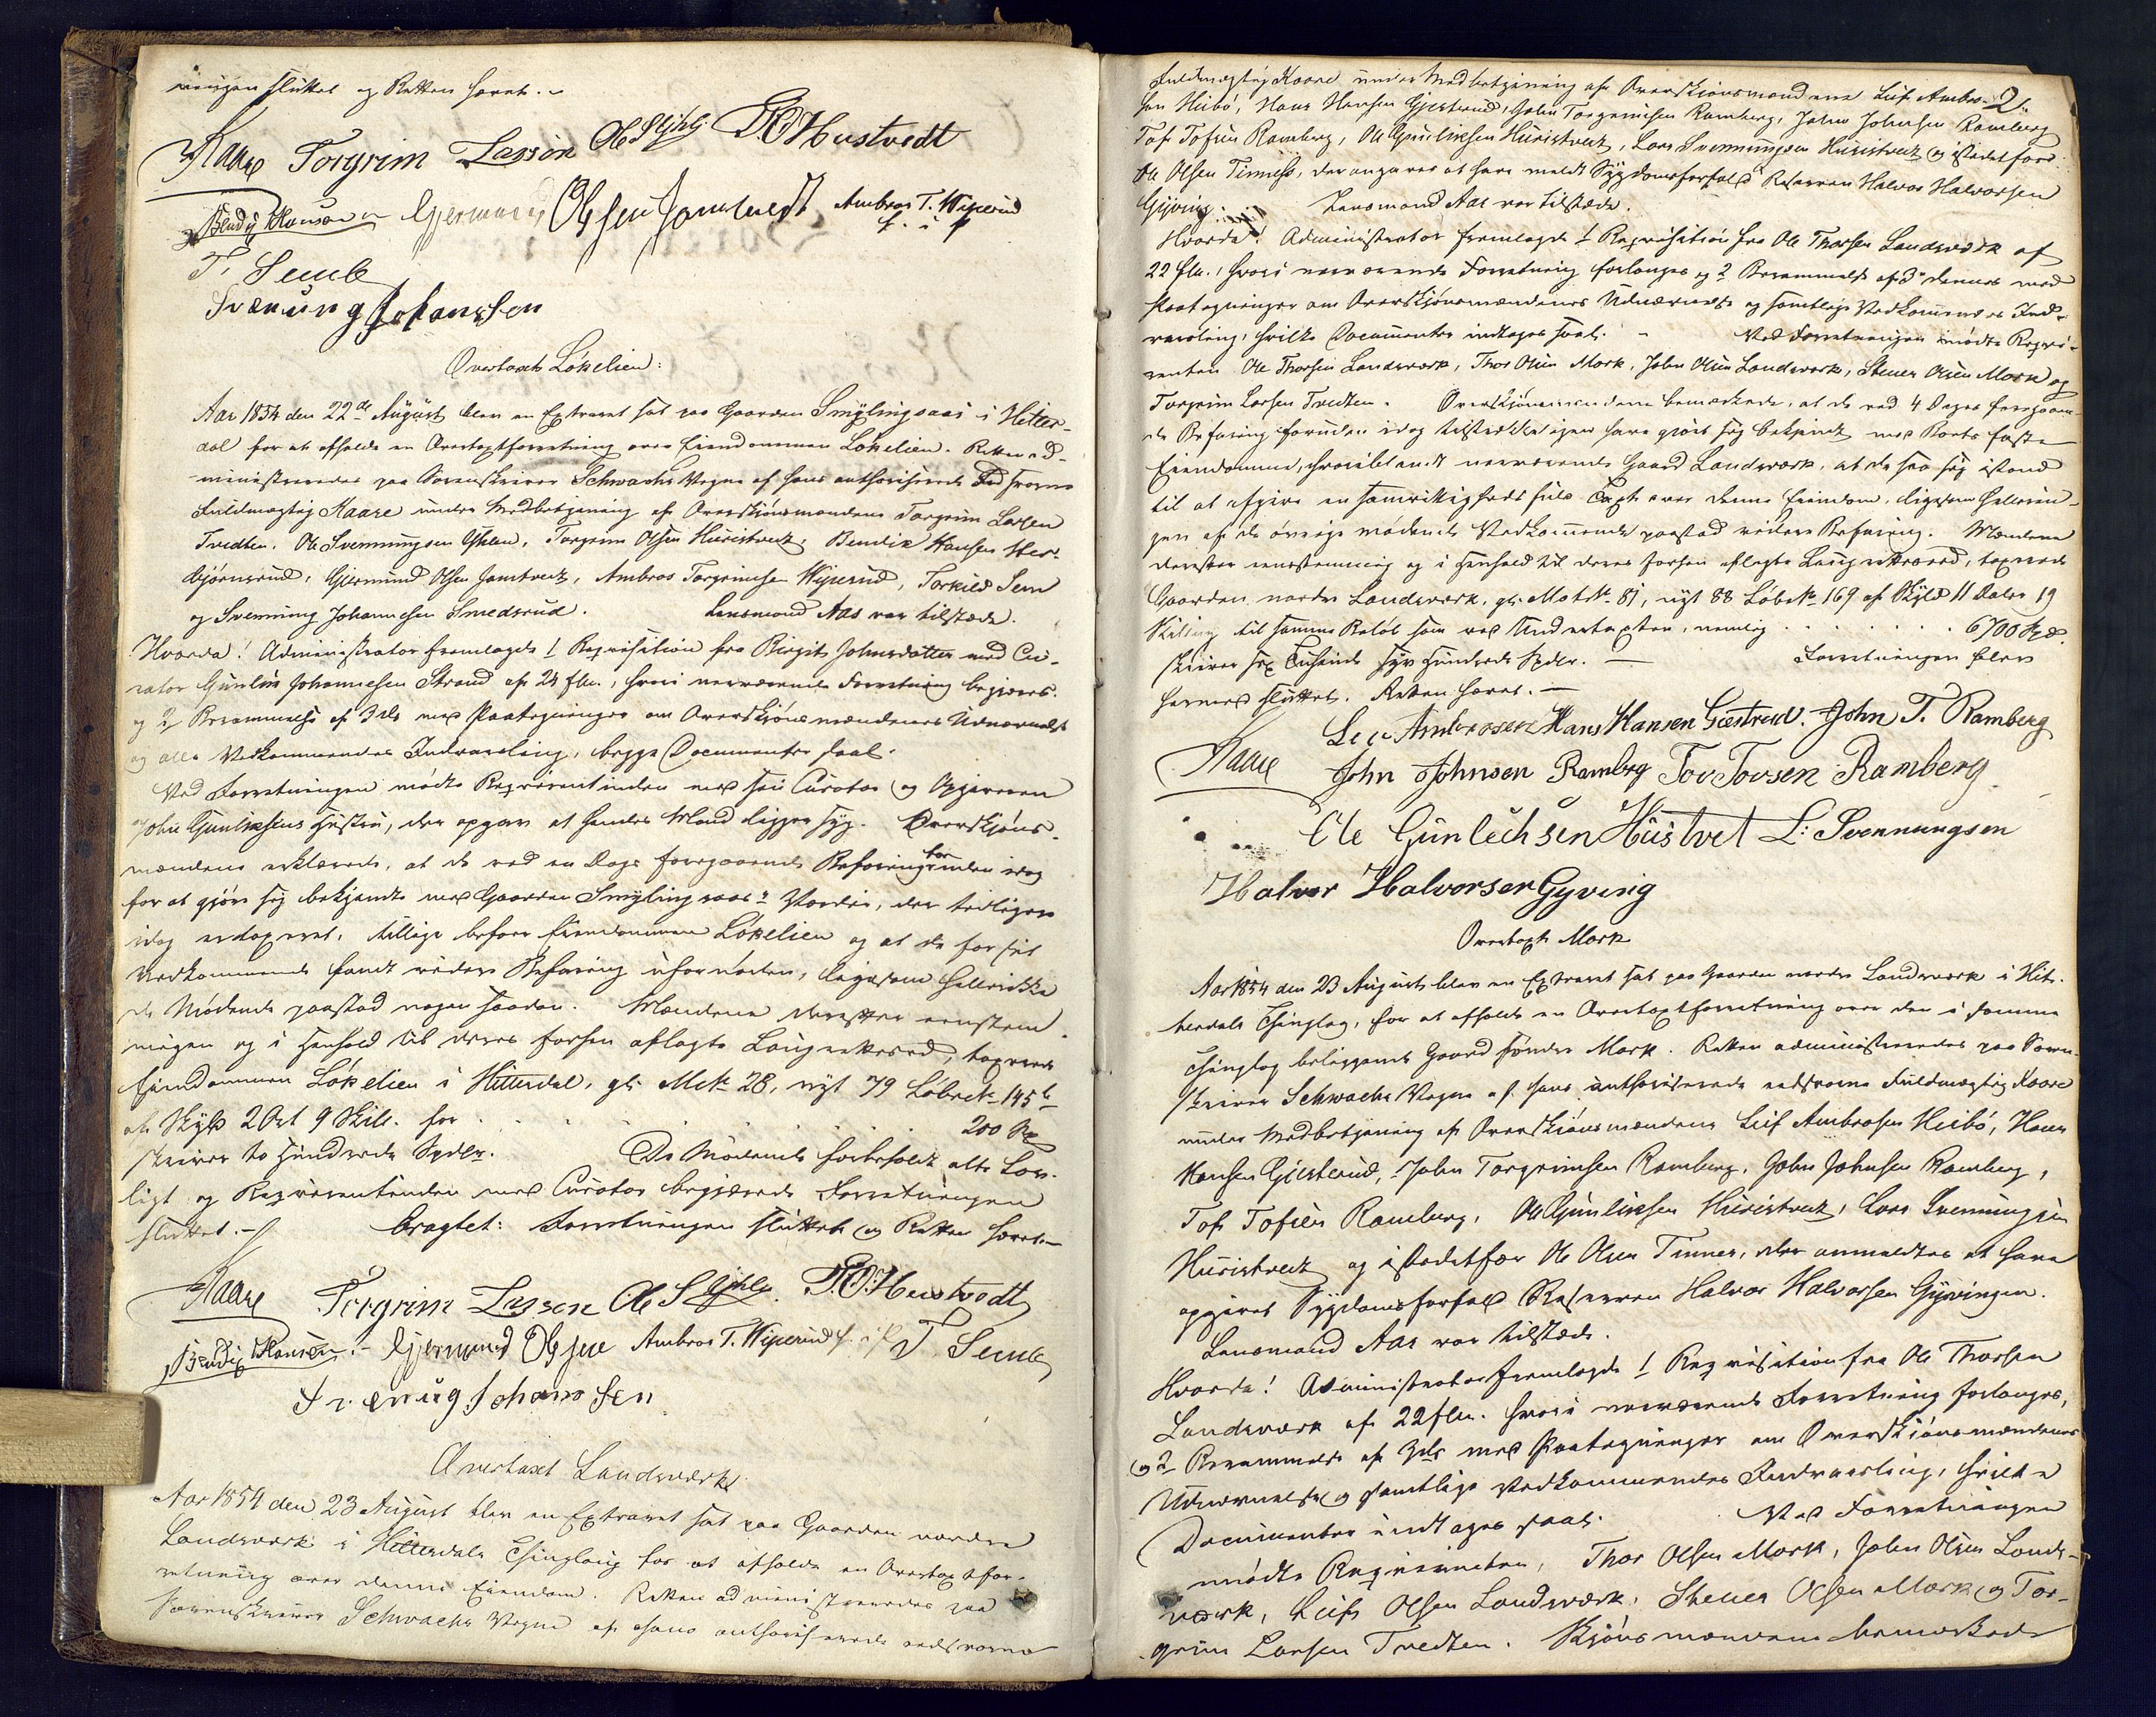 ningen sluttet og Retten hævet. -
Kaare Torgrim Lassøn Ole S Yhlj T O Hustvedt
Bendiz Hansen Gjermund Olssen Jamtvedt Ambros T. Wiperud
f. i p
T. Semb
Svenung Johanssen
Overtaxt Lökelien:
Aar 1854 den 22de August blev en Extraret sat paa Gaarden Smylingsaas i Hitter-
dal for at afholde en Overtaxtforretning over Eiendommen Lökelien. Retten ad-
ministreredes paa Sorenskriver Schwachs Vegne af hans authoriserede Edsvorne
Fuldmægtig Kaare under Medbetjening af Overskjönsmændene Torgrim Larsen
Tvedten, Ole Svennungsen Yhlen, Torgrim Olsen Huustvedt, Bendix Hansen
björnerud, Gjermund Olsen Jamtvedt, Ambros Torgrimsen Wiperud, Torkild Sem
og Svennung Johannesen Smedsrud. Lensmand Aas var tilstæde.
Hvorda! Administrator fremlagde 1 Reqvisition fra Birgit Johnsdatter med Cu-
rator Gunlev Johannesen Strand af 24 f.M., hvori nærværende Forretning begjæres.
og 2 Berammelse af 3 ds med Paategninger om Overskjönsmændenes Udnævnelse
og alle Vedkommendes Indvarsling, begge Documenter saal.
Ved Forretningen mödte Reqvirentinden med sin Curator og Opgiveren
John Gunleksens Hustru, der opgav at hendes Mand ligger syg. Overskjöns-
mændene erklærede, at de ved en Dags foregaaende Befaring foruden idag
for at gjöre sig bekjendt med Gaarden Smylingsaas's Værdie, der tidligere
idag er taxeret, tillige befoer Eiendommen Lökelien og at de for sit
Vedkommende fandt videre Befaring ufornöden, ligesom heller ikke
de Mödende paastod nogen saadan. Mændene derefter eenstem-
migen og i Henhold til deres forhen aflagte Laugretteseed, taxerede
Eiendommen Lökelien i Hitterdal, gl. Mt. No 28, nyt 79 Löbe No 145 b
af Skyld 2 Ort 9 Skill. for . . . . . . 200 Spd
skriver to Hundrede Spdlr. De Mödende forbeholdt alt Lov-
ligt og Reqvirentinden med Curator begjærede Forretningen
sluttet. - Eragtet: Forretningen sluttet og Retten hævet. -
Kaare Torgrim Lassen Ole S Yhlen T. O. Hustvedt
Bendix Hansen - Gjermund Olssen Ambros T. Wiperud f. i P T Semb
Svenug Johanssen
Overtaxt Landsværk
Aar 1854 den 23 August blev en Extraret sat paa Gaarden nordre
Landsværk i Hitterdals Thinglaug for at afholde en Overtaxtfor-
retning over denne Eiendom. Retten administreredes paa
Sorenskriver Schwachs Vegne af hans authoriserede edsvorne
2.
Fuldmægtig Kaare under Medbetjening af Overskjönsmændene Leif Ambros-
sen Heibö, Hans Hansen Gjestrud, John Torgrimsen Ramberg, John Johnsen Ramberg
Tof Tofsen Ramberg, Ole Gunleksen Huustvedt, Lars Svennungsen Huustvedt og istedetfor
Ole Olsen Tinness, der angaves at have meldt Sygdomsforfald Reserven Halvor Halvorsen
Gyving. Lensmand Aas var tilstæde.
Hvorda! Administrator fremlagde 1 Reqvisition fra Ole Thorsen Landsværk af
22 f.M., hvori nærværende Forretning forlanges og 2 Berammelse af 3 dennes med
Paategninger om Overskjönsmændenes Udnævnelse og samtlige Vedkommendes Ind-
varsling, hvilke Documenter indtages saal. - Ved Forretningen mödte Reqvi-
renten Ole Thorsen Landsværk, Thor Olsen Mork, John Olsen Landsværk, Stener Olsen Mork og
Torgrim Larsen Tvedten. Overskjönsmændene bemærkede, at de ved 4 Dages foregaaen-
de Befaring foruden idag tilstrækkeligen have gjort sig bekjendt med
Eiendomme, hvoriblandt nærværende Gaard Landsværk, at de saa sig istand
til at afgive en samvittighedsfuld Taxt over denne Eiendom, ligesom hellerin-
gen af de övrige mödende Vedkommende paastod videre Befaring. Mændene
derefter eenstemmig og i Henhold til deres forhen aflagte Laugretteseed, taxerede
Gaarden nordre Landsværk, gl. Mat. No 81, nyt 88 Löbe No 169 af Skyld 11 Daler 19
Skilling til samme Belöb som ved Undertaxten, nemlig . . . . . . . 6700 Spd.
skriver sex Tusinde syv Hundrede Spdlr. - Forretningen blev
hermed sluttet. Retten hævet. -
Kaare Leif Ambrossen Hans Hansen Giæstrud. John T. Ramberg
John Johnsen Ramberg Tov Tovsen Ramberg
Ole Gunlechsen Hüstvet L: Svennungsen
Halvor Halvorsen Gyving
Overtaxt Mork
Aar 1854 den 23 August blev en Extraret sat paa Gaarden nordre Landsværk i Hit-
terdals Thinglag, for at afholde en Overtaxtforretning over den i samme
Thinglag beliggende Gaard söndre Mork. Retten administreredes paa Soren-
skriver Schwachs Vegne af hans authoriserede edsvorne Fuldmægtig Kaare
under Medbetjening af Overskjönsmændene Leif Ambrosen Heibö, Hans
Hansen Gjestrud, John Torgrimsen Ramberg, John Johnsen Ramberg,
Tof Tofsen Ramberg, Ole Gunleksen Huustvedt, Lars Svennungsen
Huustvedt og istedetfor Ole Olsen Tinnes, der anmeldtes at have
opgivet Sygdomsforfald Reserven Halvor Halvorsen Gyvingen.
Lensmand Aas var tilstæde.
Hvorda! Administrator fremlagde 1 Reqvisition fra Ole Thorsen
Landsværk af 22 f.M. hvori nærværende Forretning forlanges,
og 2 Berammelse af 3 ds med Paategninger om Overskjönsmændenes
Udnævnelse og samtlige Vedkommendes Indvarsling, hvilke
Documenter indtages saal. Ved Forretningen
mödte Reqvirenten, Thor Olsen Mork, John Olsen Lands-
værk, Leif Olsen Landsværk, Stener Olsen Mork og Tor-
grim Larsen Tvedten. Skjönsmændene bemærkede